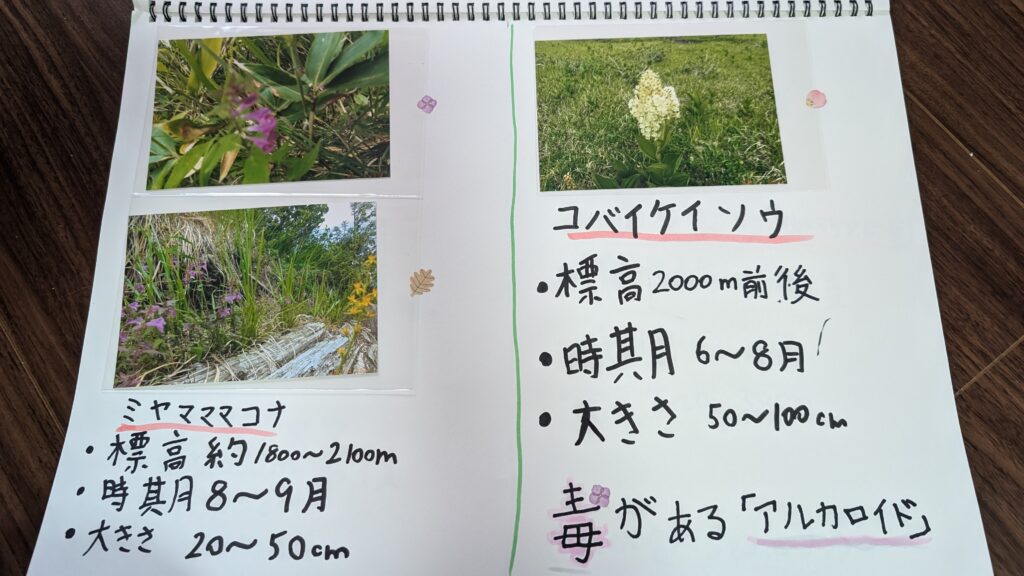 ミヤマママコナ
・標高 約1800〜2100m
・時期 8〜9月
・大きさ 20〜50cm
コバイケイソウ
・標高 2000m前後
・時期 6〜8月
・大きさ 50〜100cm
毒がある「アルカロイド」